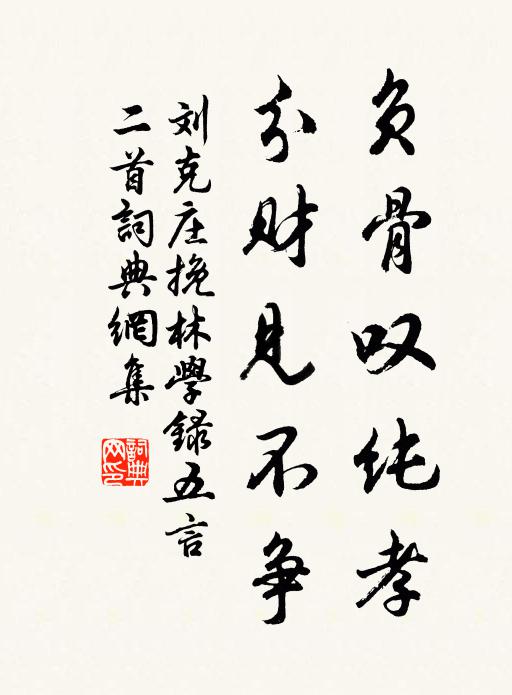 负骨叹纯孝
分财见不争
刘克庄挽林学録五言
二首詞典網集
詞典网印